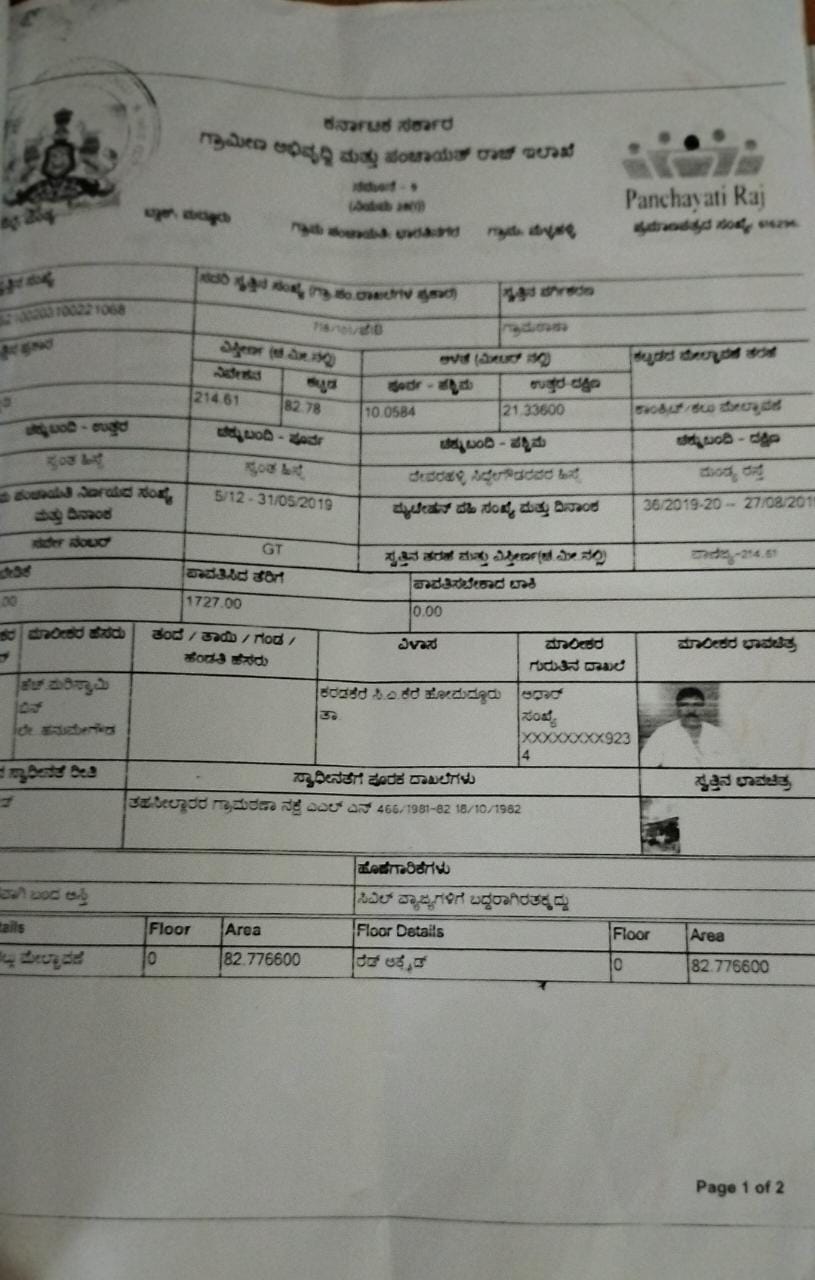 ಕರ್ನಾಟಕ ಸರ್ಕಾರ
ಗ್ರಾಮೀಣ ಅಭಿವೃದ್ಧಿ ಮತ್ತು ಪಂಚಾಯತ್ ರಾಜ್ ಇಲಾಖೆ
ನಮೂನೆ - 9
Panchayati Raj
ಬ್ಲಾಕ್: ಮದ್ದೂರು ಗ್ರಾಮ ಪಂಚಾಯತಿ: ಭಾರತಿನಗರ ಗ್ರಾಮ:
ಸದರಿ ಸ್ವತ್ತಿನ ಸಂಖ್ಯೆ (ಗ್ರಾ.ಪಂ.ದಾಖಲೆಗಳ ಪ್ರಕಾರ) ಸ್ವತ್ತಿನ ವರ್ಗೀಕರಣ
ಗ್ರಾಮಠಾಣಾ
ವಿಸ್ತೀರ್ಣ (ಚ.ಮೀ.ನಲ್ಲಿ) ಅಳತೆ (ಮೀಟರ್ ನಲ್ಲಿ) ಕಟ್ಟಡದ ಮೇಲ್ಛಾವಣಿ ತರಹೆ
ನಿವೇಶನ ಕಟ್ಟಡ ಪೂರ್ವ - ಪಶ್ಚಿಮ ಉತ್ತರ-ದಕ್ಷಿಣ
214.61 82.78 10.0584 21.33600
ಚಕ್ಕುಬಂದಿ - ಉತ್ತರ ಚಕ್ಕುಬಂದಿ - ಪೂರ್ವ ಚಕ್ಕುಬಂದಿ - ಪಶ್ಚಿಮ ಚಕ್ಕುಬಂದಿ - ದಕ್ಷಿಣ
ಸ್ವಂತ ಹಿಸ್ಸೆ ಸ್ವಂತ ಹಿಸ್ಸೆ ದೇವರಹಳ್ಳಿ ಸಿದ್ದೇಗೌಡರವರ ಹಿಸ್ಸೆ ಮಂಡ್ಯ ರಸ್ತೆ
ಪಂಚಾಯತಿ ನಿರ್ಣಯದ ಸಂಖ್ಯೆ ಮತ್ತು ದಿನಾಂಕ 5/12 - 31/05/2019 ಮ್ಯುಟೇಶನ್ ವಹಿ ಸಂಖ್ಯೆ ಮತ್ತು ದಿನಾಂಕ 36/2019-20 -- 27/08/201
ಸರ್ವೆ ನಂಬರ್ GT ಸ್ವತ್ತಿನ ತರಹೆ ಮತ್ತು ವಿಸ್ತೀರ್ಣ(ಚ.ಮೀ.ನಲ್ಲಿ) ವಾಣಿಜ್ಯ-214.61
ಪಾವತಿಸಿದ ತೆರಿಗೆ ಪಾವತಿಸಬೇಕಾದ ಬಾಕಿ
1727.00 0.00
ಮಾಲೀಕರ ಹೆಸರು ತಂದೆ / ತಾಯಿ / ಗಂಡ / ವಿಳಾಸ ಮಾಲೀಕರ ಮಾಲೀಕರ ಭಾವಚಿತ್ರ
ಹೆಂಡತಿ ಹೆಸರು ಗುರುತಿನ ದಾಖಲೆ
ಹೆಚ್.ಮರಿಸ್ವಾಮಿ ಕರಡಕೆರೆ ಸಿ.ಎ.ಕೆರೆ ಹೋ ಮದ್ದೂರು ಆಧಾರ್
ಬಿನ್ ತಾ ಸಂಖ್ಯೆ
ಲೇ. ಹನುಮೇಗೌಡ XXXXXXXX923
4
ಸ್ವಾಧೀನತೆ ರೀತಿ ಸ್ವಾಧೀನತೆಗೆ ಪೂರಕ ದಾಖಲೆಗಳು ಸ್ವತ್ತಿನ ಭಾವಚಿತ್ರ
ತಹಸೀಲ್ದಾರರ ಗ್ರಾಮಠಾಣಾ ನಕ್ಷೆ ಎಎಲ್ ಎನ್ 466/1981-82 18/10/1982
ಹೊಣೆಗಾರಿಕೆಗಳು
ಬಂದ ಆಸ್ತಿ ಸಿವಿಲ್ ವ್ಯಾಜ್ಯಗಳಿಗೆ ಬದ್ದರಾಗಿರತಕ್ಕದ್ದು
Floor Area Floor Details Floor Area
ಮೇಲ್ಛಾವಣಿ 0 82.776600 ರೆಡ್ ಆಕ್ಸೈಡ್ 0 82.776600
Page 1 of 2